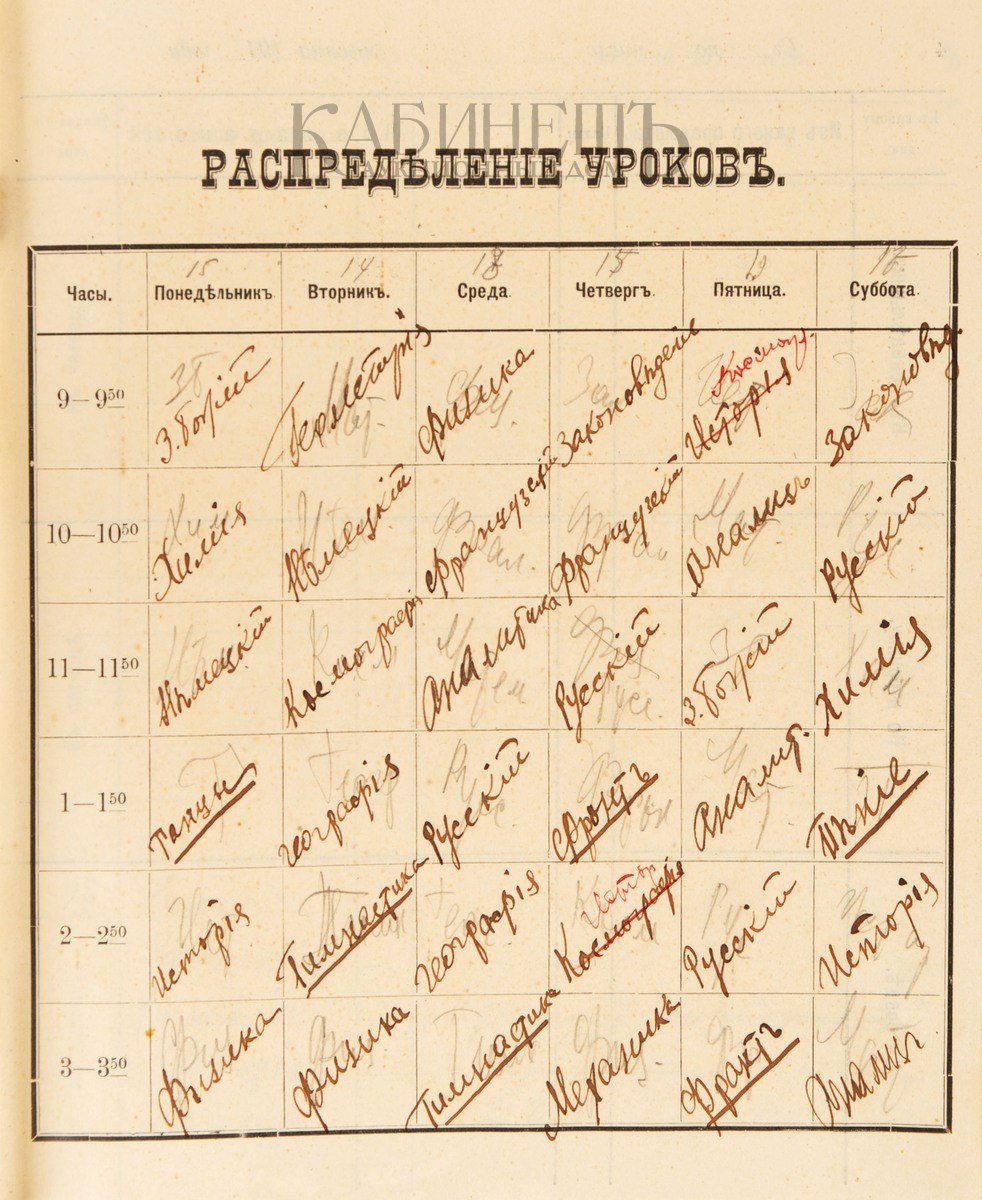 КАБИНЕТЪ
РАСПРЕДѢЛЕНІЕ УРОКОВЪ.
15 14 18 15 16
Часы. Понедѣльникъ. Вторникъ. Среда. Четвергъ. Пятница. Суббота.
9—9 50 З. Божій Геометрія Физика Законовѣденіе Космогр. Исторія Законовѣд.
10—10 50 Химія Нѣмецкій Французскій Французскій Аналит Русскій
11—11 50 Нѣмецкій Космографія Аналитика Русскій З. Божій Химія
1—1 50 Танцы Географія Русскій Фронтъ Аналит. Пѣніе
2—2 50 Исторія Гимнастика Географія Истор Космографія Русскій Исторія
3—3 50 Физика Физика Гимнастика Механика Фронтъ Аналит